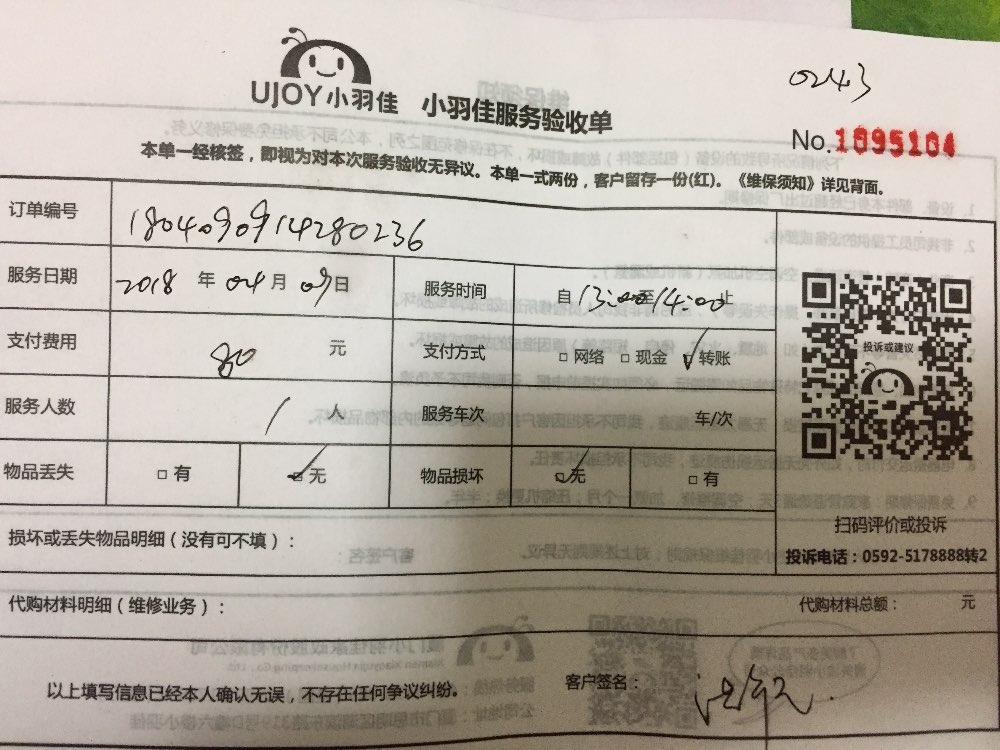 0243
UJOY小羽佳 小羽佳服务验收单
No.1095104
本单一经核签，即视为对本次服务验收无异议。本单一式两份，客户留存一份(红)。《维保须知》详见背面。
订单编号 1804090914280236
服务日期 2018 年 04 月 09 日 服务时间 自 13:00 至 14:00 止
支付费用 80 元 支付方式 □ 网络 □ 现金 √ 转账
服务人数 1 人 服务车次 车/次
物品丢失 □ 有 ☑ 无 物品损坏 ☑ 无 □ 有
投诉或建议
扫码评价或投诉
投诉电话：0592-5178888转2
损坏或丢失物品明细（没有可不填）：
代购材料明细（维修业务）： 代购材料总额： 元
以上填写信息已经本人确认无误，不存在任何争议纠纷。 客户签名：